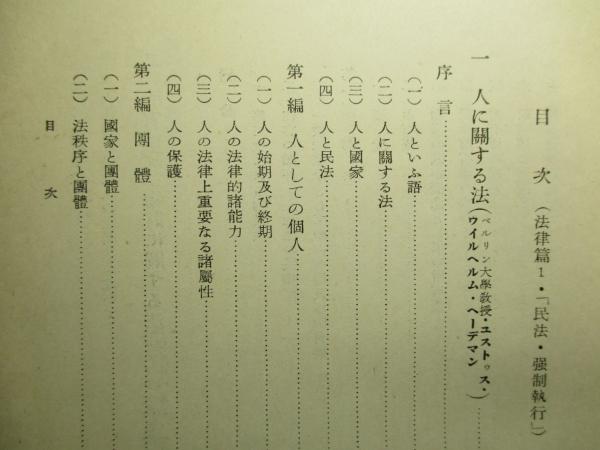 目 次 (法律篇1・「民法・强制執行」)
一 人に關する法(ベルリン大學敎授・ユストゥス・ウイルヘルム・ヘーデマン)
序 言
(一) 人といふ語
(二) 人に關する法
(三) 人と國家
(四) 人と民法
第一編 人としての個人
(一) 人の始期及び終期
(二) 人の法律的諸能力
(三) 人の法律上重要なる諸屬性
(四) 人の保護
第二編 團 體
(一) 國家と團體
(二) 法秩序と團體
目 次